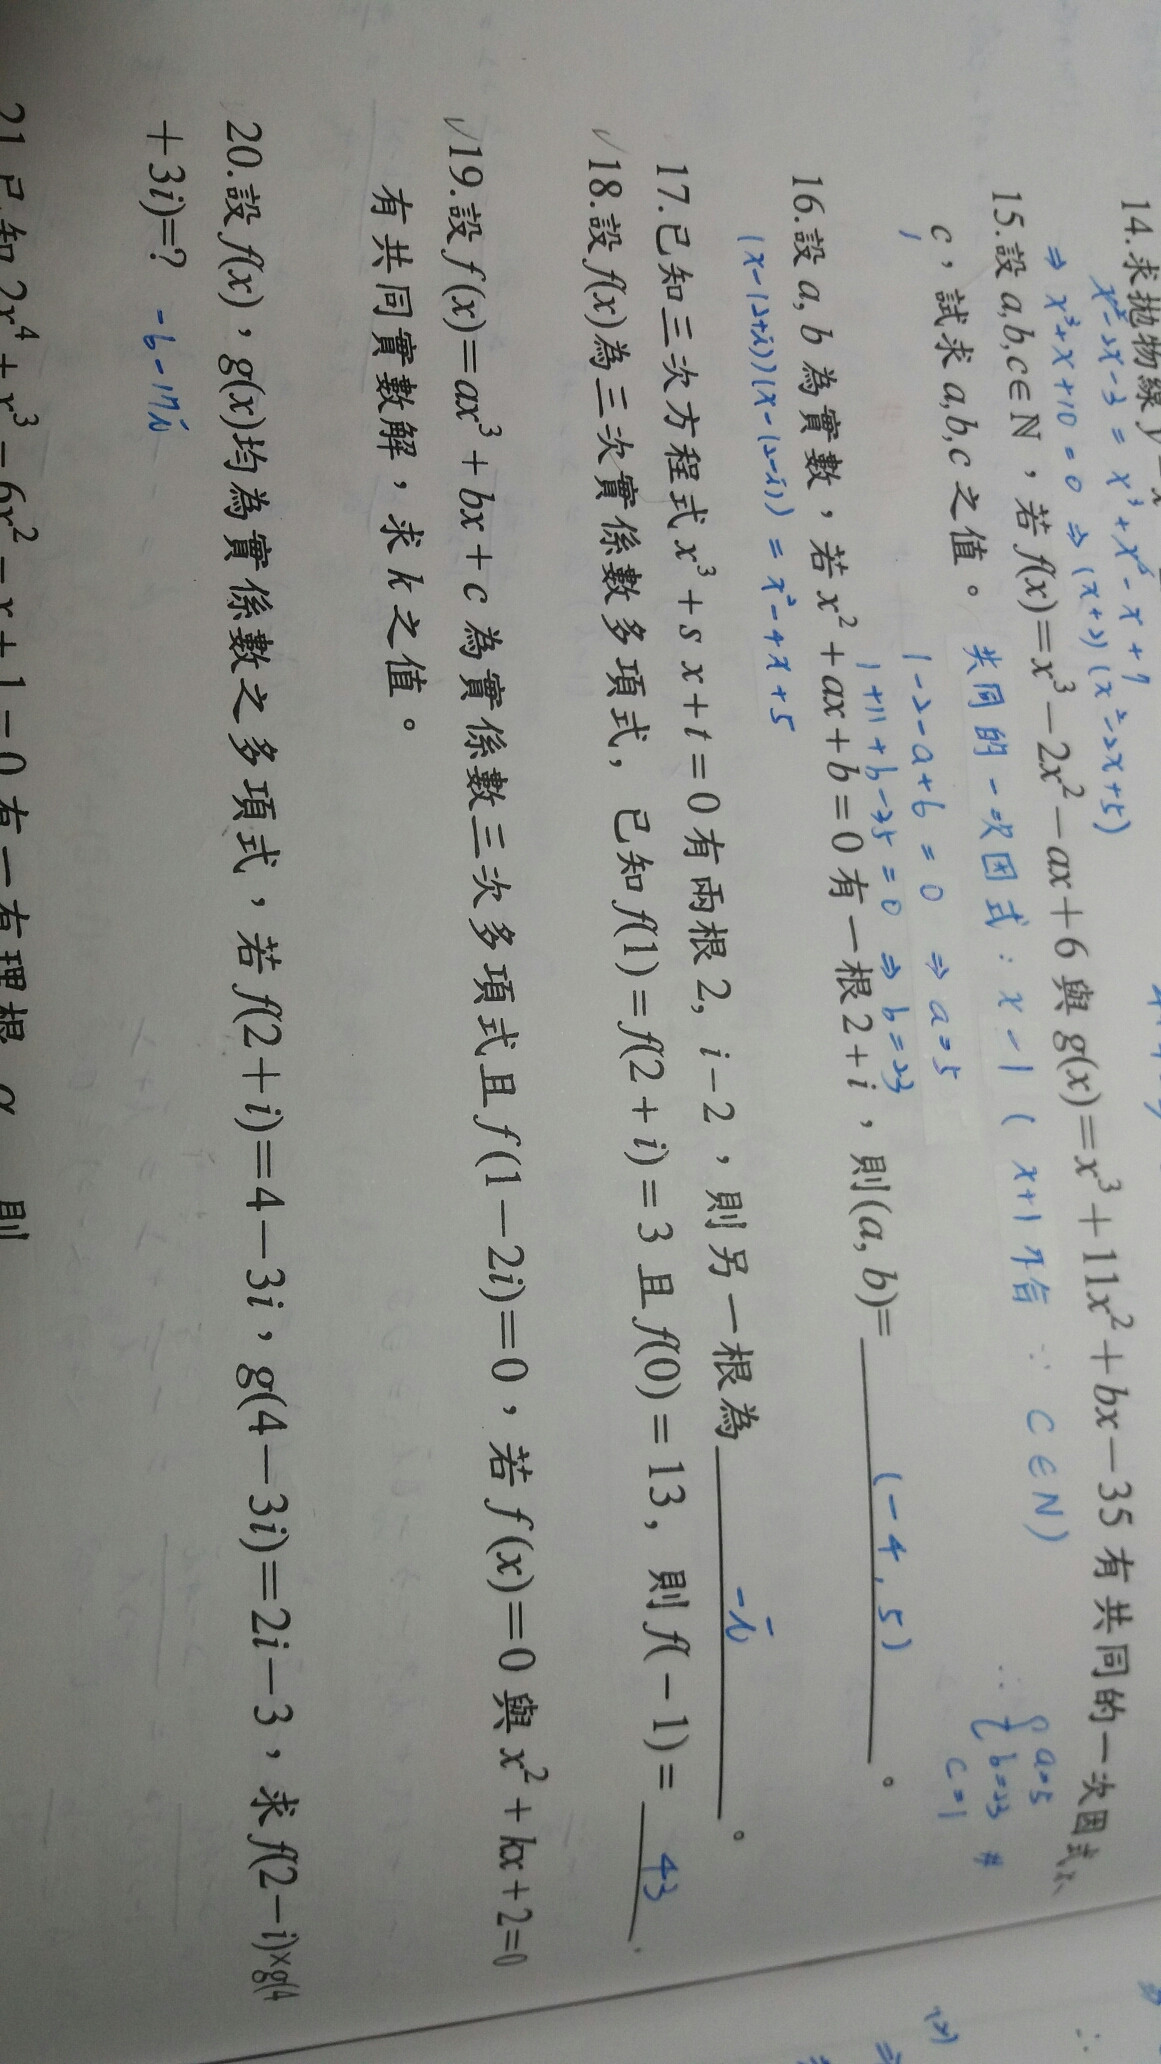 14.求拋物線y
x²-2x-3 = x³+x²-x+7
⇒ x³+x+10=0 ⇒ (x+2)(x²-2x+5)
15.設a,b,c∈N,若f(x)=x³-2x²-ax+6與g(x)=x³+11x²+bx-35有共同的一次因式x-
c,試求a,b,c之值。 共同的一次因式:x-1 (x+1不合 ∵ c∈N)
1
1-2-a+6=0 ⇒ a=5
1+11+b-35=0 ⇒ b=23
∴ { a=5
b=23 #
c=1
16.設a, b為實數,若x²+ax+b=0有一根2+i,則(a, b)= (-4, 5) 。
(x-(2+i))(x-(2-i)) = x²-4x+5
17.已知三次方程式x³+s x+t=0有兩根2, i-2,則另一根為 -i 。
✓18.設f(x)為三次實係數多項式, 已知f(1)=f(2+i)=3 且f(0)=13, 則f(-1)= 43 .
✓19.設f(x)=ax³+bx+c為實係數三次多項式且f(1-2i)=0,若f(x)=0與x²+kx+2=0
有共同實數解,求k之值。
20.設f(x),g(x)均為實係數之多項式,若f(2+i)=4-3i,g(4-3i)=2i-3,求f(2-i)×g(4
+3i)=? -6-17i
21.已知2x⁴+x³-6x²-x+1=0有一有理根 α 則